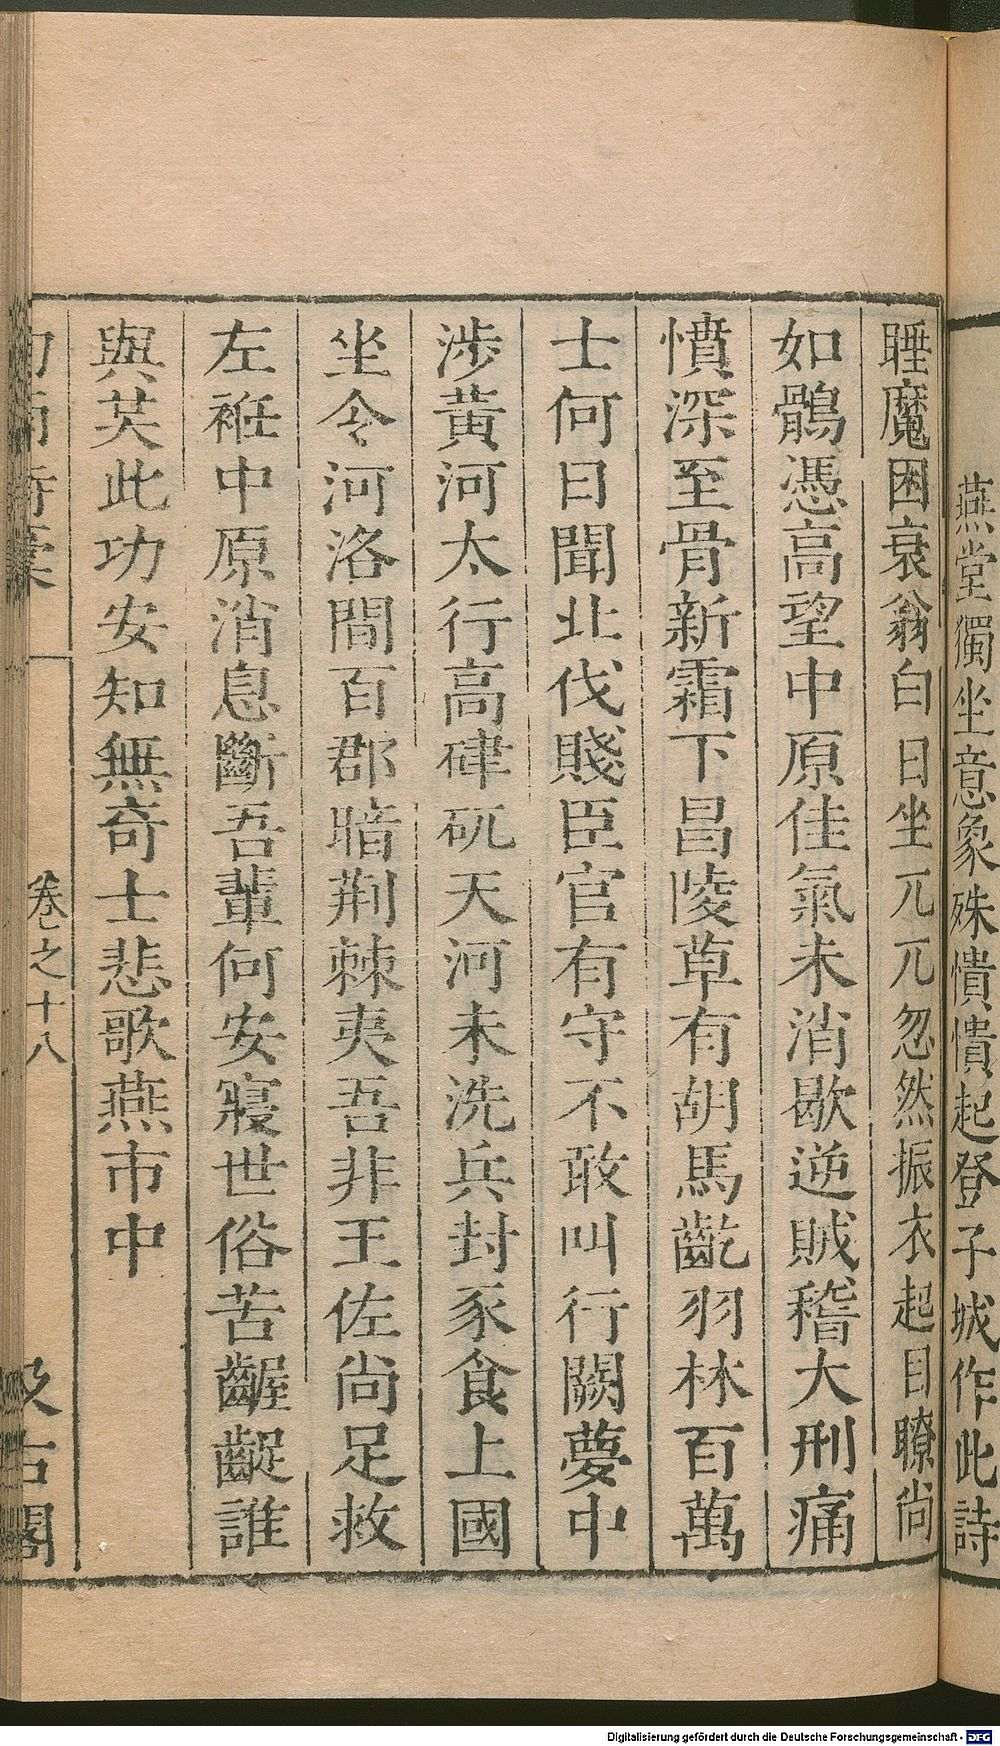 燕堂獨坐意象殊憒憒起登子城作此詩
睡魔困衰翁白日坐兀兀忽然振衣起目瞭尚
如鶻憑高望中原佳氣未消歇逆賊稽大刑痛
憤深至骨新霜下昌陵草有胡馬齕羽林百萬
士何日聞北伐賤臣官有守不敢叫行闕夢中
涉黃河太行高硉矹天河未洗兵封豕食上國
坐令河洛間百郡暗荆棘夷吾非王佐尚足救
左袵中原消息斷吾輩何安寢世俗苦齷齪誰
與共此功安知無奇士悲歌燕市中
卷之十八
汲古閣
Digitalisierung gefördert durch die Deutsche Forschungsgemeinschaft - DFG